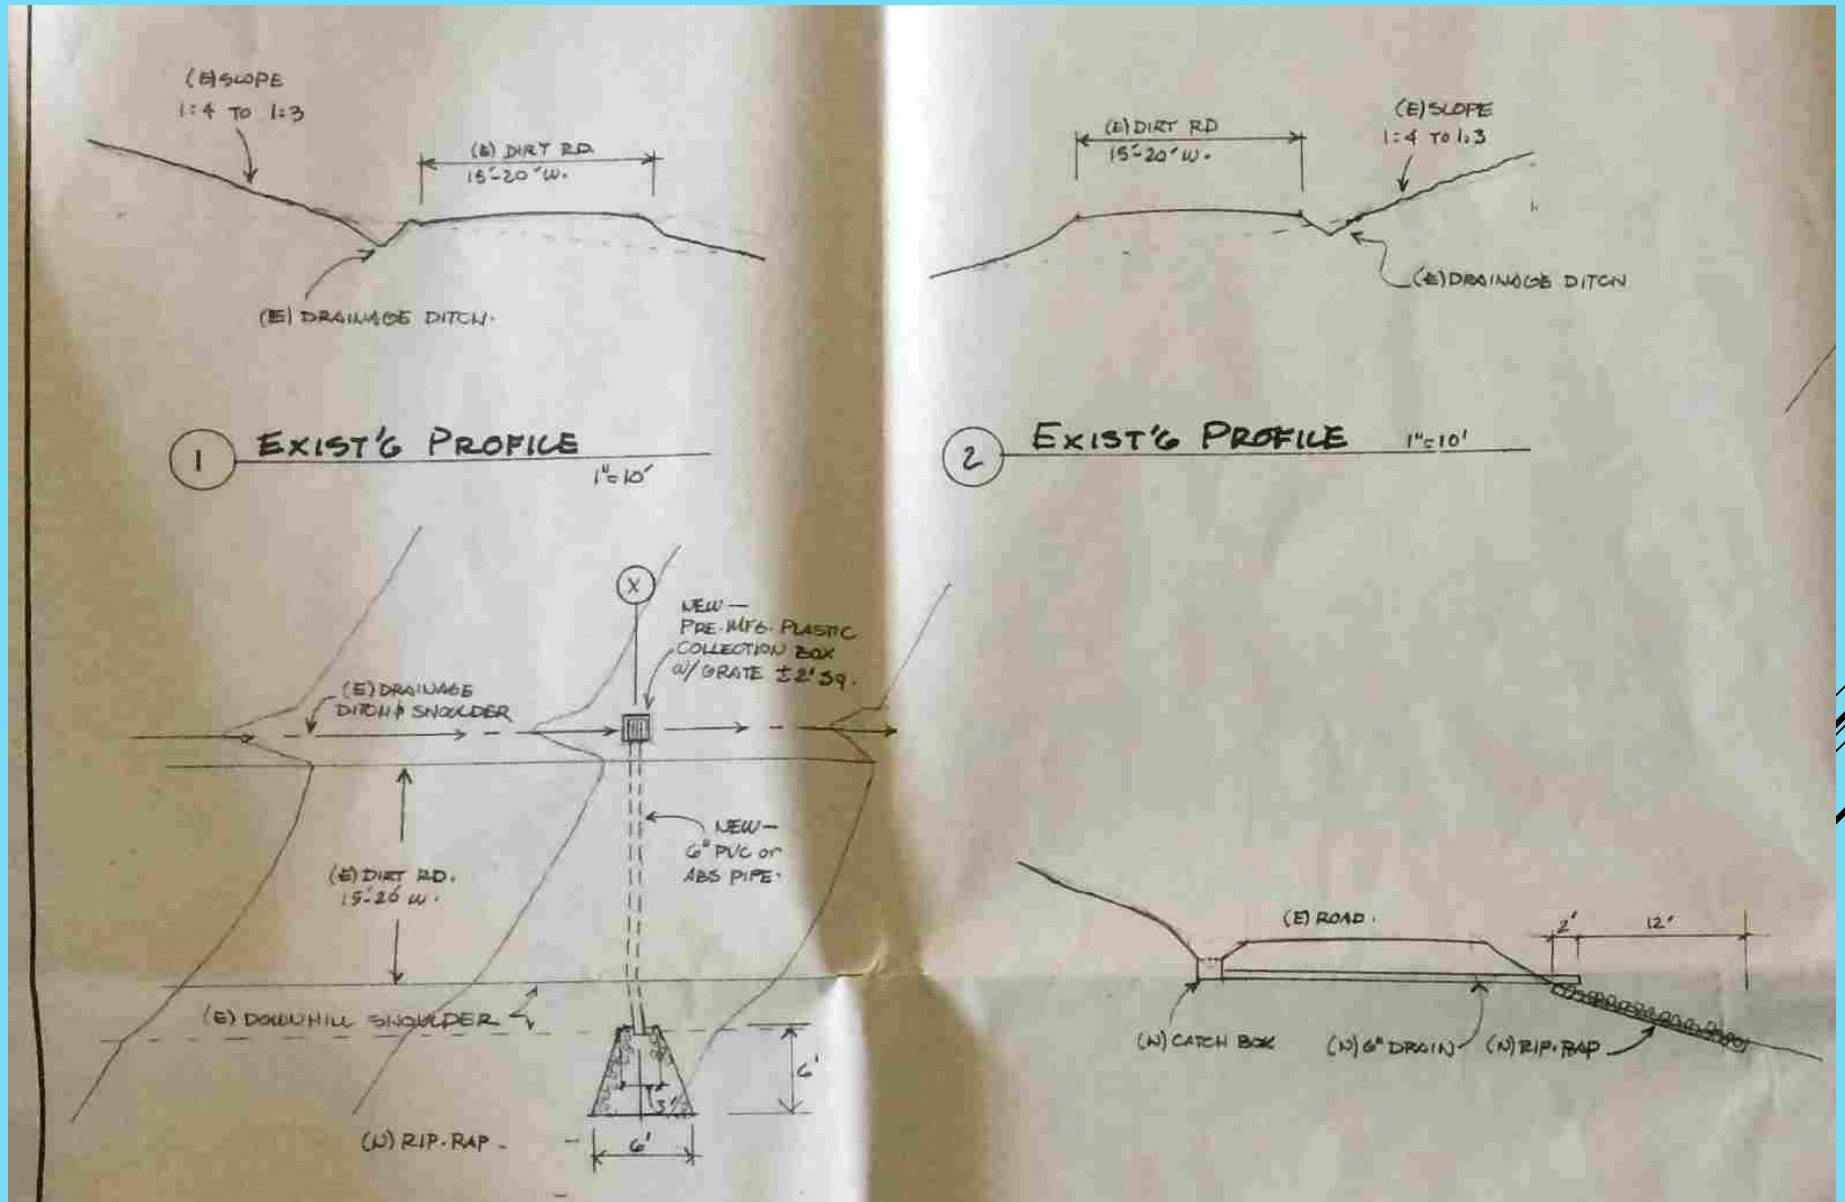 (E) SLOPE
1:4 TO 1:3
(E) DIRT RD.
15'-20' W.
(E) DRAINAGE DITCH.
1
EXIST'G PROFILE
1"=10'
(E) DIRT RD
15'-20' W.
(E) SLOPE
1:4 TO 1:3
(E) DRAINAGE DITCH
2
EXIST'G PROFILE 1"=10'
X
NEW —
PRE-MFG. PLASTIC
COLLECTION BOX
W/ GRATE ±2' SQ.
(E) DRAINAGE
DITCH & SHOULDER
NEW —
6" PVC or
ABS PIPE.
(E) DIRT RD.
15'-20' W.
(E) DOWNHILL SHOULDER
6'
3'
6'
(N) RIP-RAP
(E) ROAD.
2'
12'
(N) CATCH BOX
(N) 6" DRAIN
(N) RIP-RAP